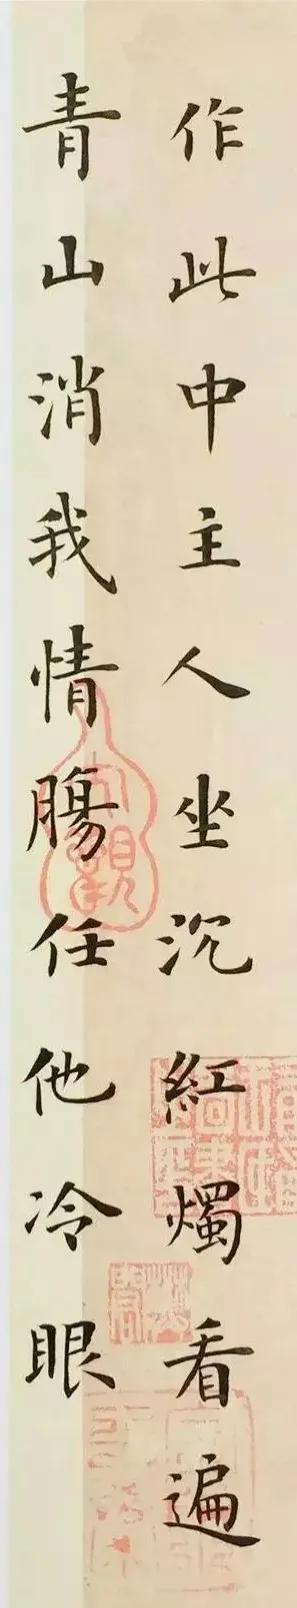 作此中主人坐沉紅燭看遍
青山消我情腸任他冷眼